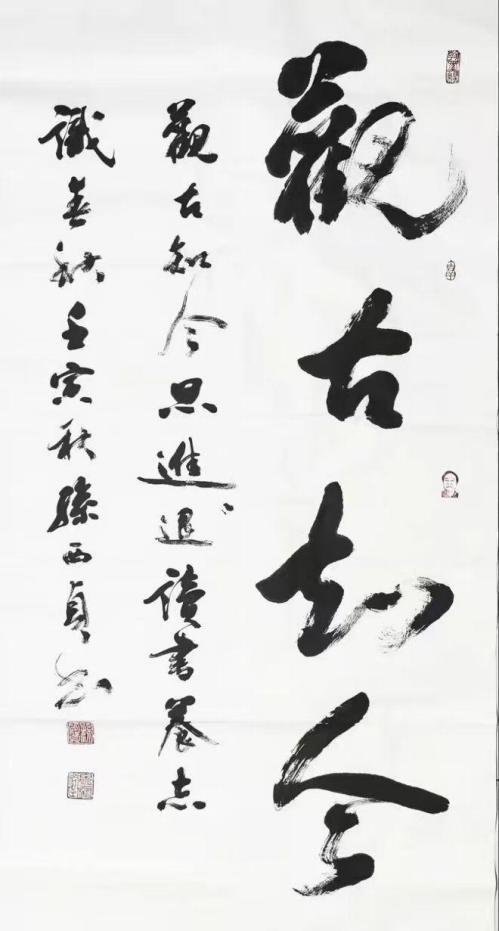 觀古知今
觀古知今思進退讀書養志
識春秋壬寅秋西貞書